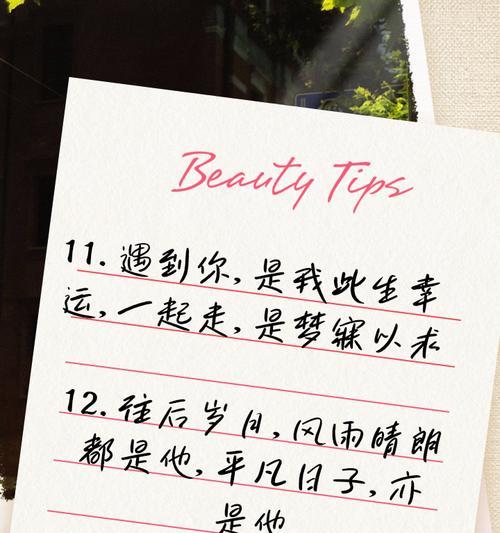 Beauty Tips
11. 遇到你, 是我此生幸
运, 一起走, 是梦寐以求
12. 往后岁月, 风雨晴朗
都是他, 平凡日子, 亦
是他